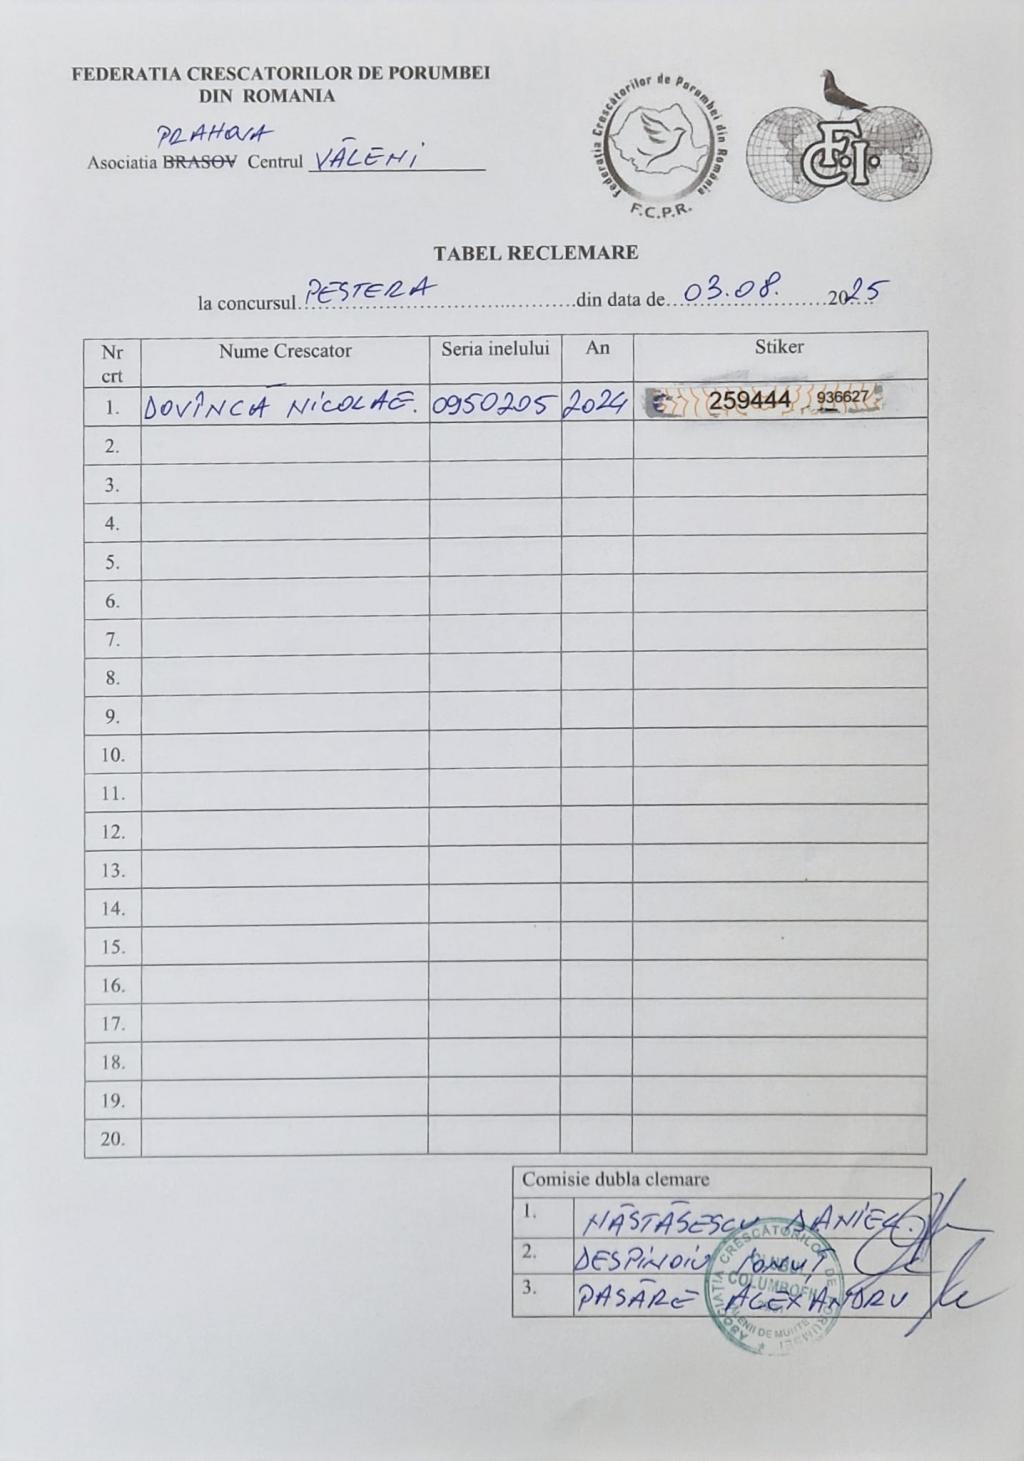 FEDERATIA CRESCATORILOR DE PORUMBEI
DIN ROMANIA
PRAHOVA
Asociatia BRASOV Centrul VĂLENI
Federatia Crescătorilor de Porumbei din România
F.C.P.R.
F.C.I.
TABEL RECLEMARE
la concursul PESTERA din data de 03.08. 2025
Nr crt Nume Crescator Seria inelului An Stiker
1. DOVÎNCĂ NICOLAE. 0950205 2024 259444 936627
2.
3.
4.
5.
6.
7.
8.
9.
10.
11.
12.
13.
14.
15.
16.
17.
18.
19.
20.
Comisie dubla clemare
1. NĂSTĂSESCU DANIEL
2. DESPINOIU IONUȚ
3. PASĂRE ALEXANDRU
ASOCIATIA CRESCATORILOR DE PORUMBEI
COLUMBOFIL
VALENII DE MUNTE